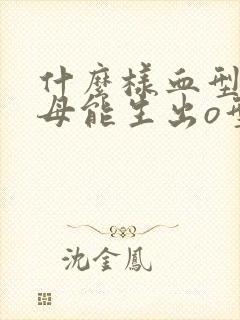 什麼樣血型
母能生出o型
沈金鳳